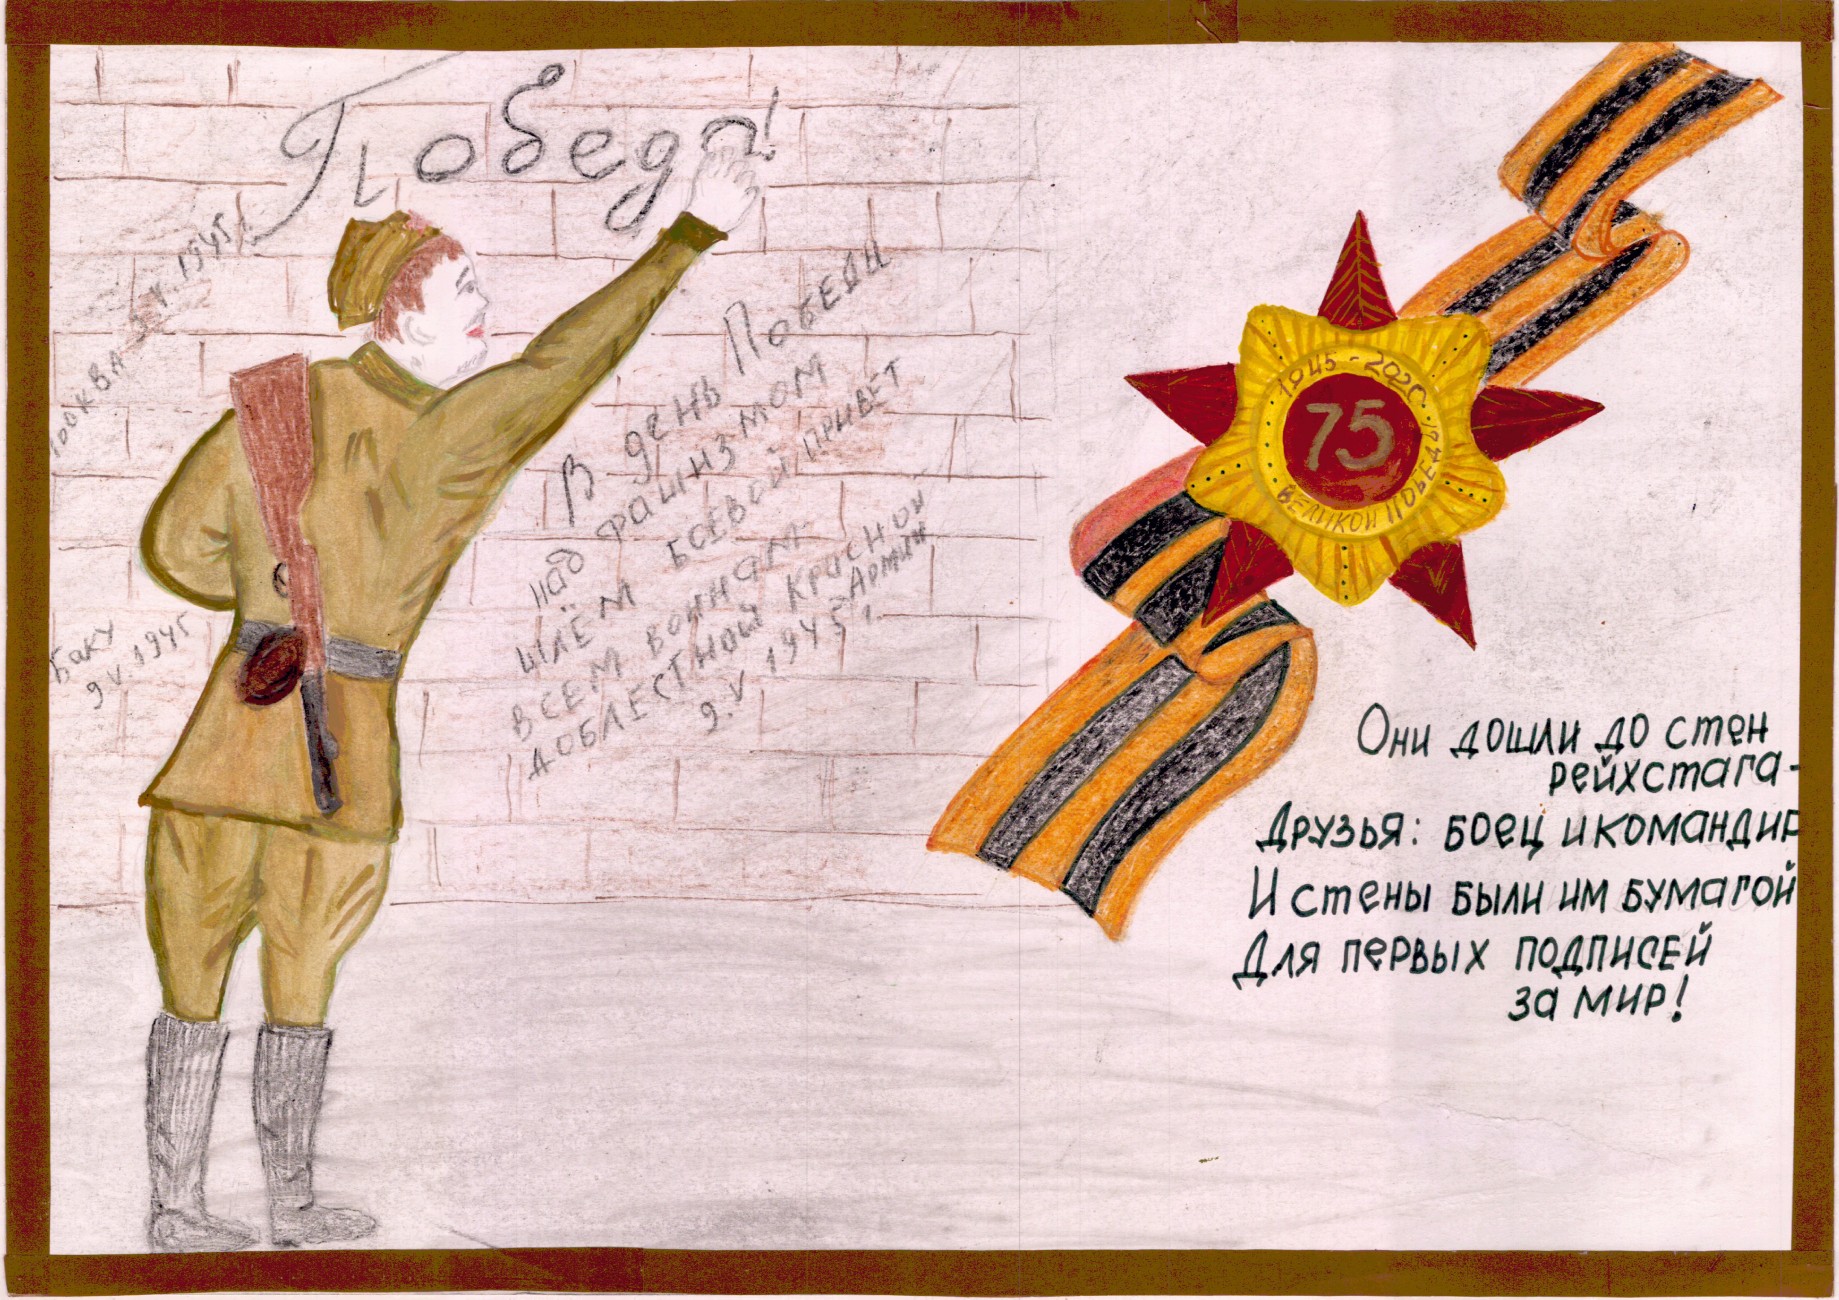 Победа!
Москва
9.V.1945
В день Победы
над фашизмом
шлём боевой привет
всем воинам
доблестной Красной
Армии
9.V.1945г.
Баку
9 V.1945
1945-2020
75
ВЕЛИКОЙ ПОБЕДЫ
Они дошли до стен
рейхстага-
Друзья: боец и командир
И стены были им бумагой
Для первых подписей
за мир!